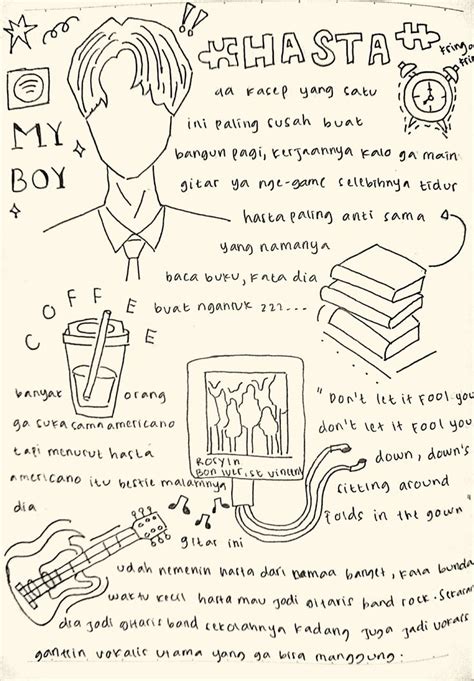 HASTA
kring
krin
aa kasep yang satu
ini paling susah buat
bangun pagi, kerjaannya kalo ga main
gitar ya nge-game selebihnya tidur
MY
BOY
hasta paling anti sama
yang namanya
baca buku, kata dia
buat ngantuk zzz...
COFFEE
banyak orang
ga suka sama americano
tapi menurut hasta
americano itu bestie malamnya
dia
ROSYIN
BON IVER, ST VINCENT
"Don't let it fool you
don't let it fool you
down, down's
sitting around
folds in the gown"
gitar ini
udah nemenin hasta dari lamaa banget, kata bunda
waktu kecil hasta mau jadi gitaris band rock. Sekaran
dia jadi gitaris band sekolahnya kadang juga jadi vokalis
gantiin vokalis utama yang ga bisa manggung: